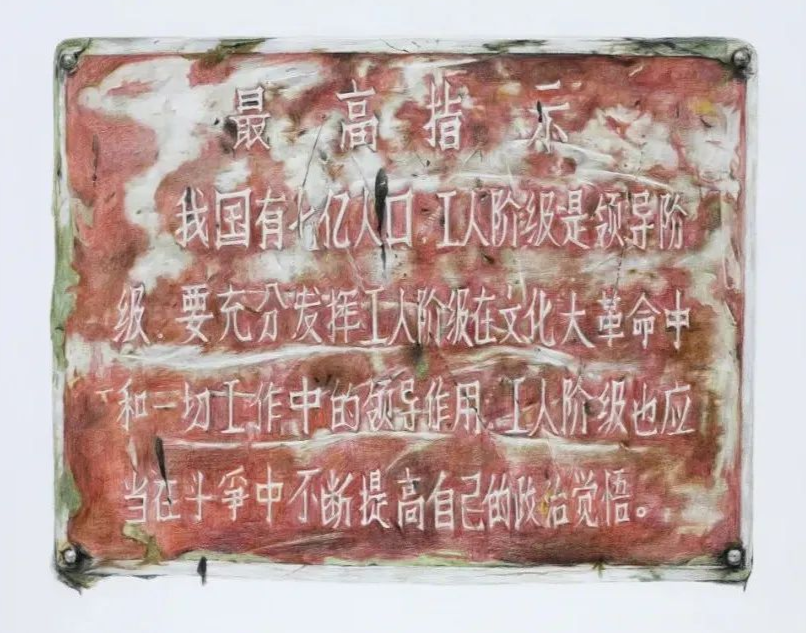 最高指示
我国有七亿人口.工人阶级是领导阶
级.要充分发挥工人阶级在文化大革命中
和一切工作中的领导作用.工人阶级也应
当在斗爭中不断提高自己的政治觉悟。